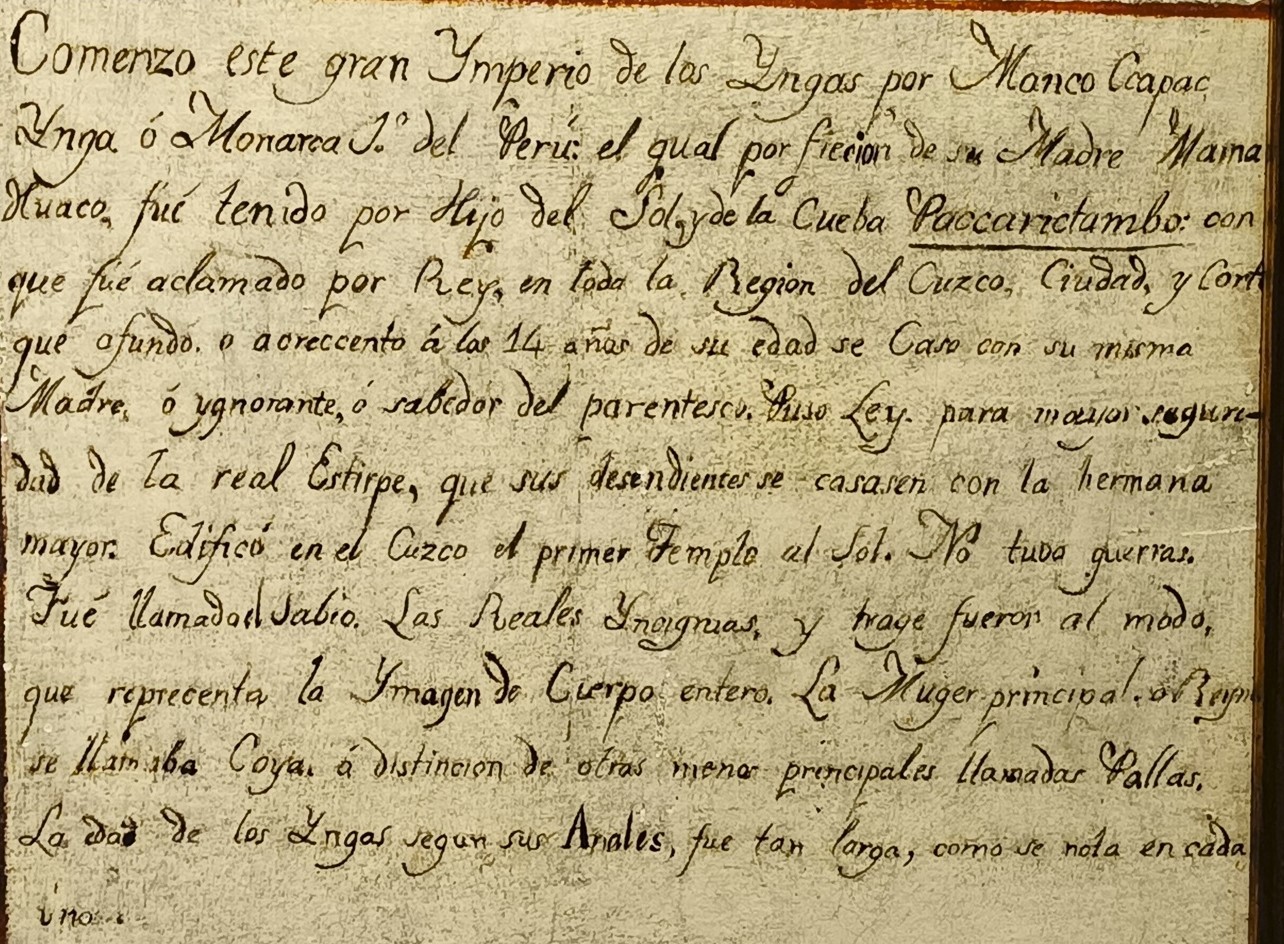 Comenzo este gran Ymperio de los Yngas por Manco Ccapac
Ynga ó Monarca 1.º del Perú: el qual por ficcion de su Madre Mama
Huaco, fué tenido por Hijo del Sol, y de la Cueba Paccarictambo: con
que fué aclamado por Rey, en toda la Region del Cuzco, Ciudad, y Corte
que ofundó. o acreccentó á los 14 años de su edad se Caso con su misma
Madre, ó ygnorante, ó sabedor del parentesco. Puso Ley. para mayor seguri-
dad de la real Estirpe, que sus desendientes se casasen con la hermana
mayor. Edificó en el Cuzco el primer Templo al Sol. No tubo guerras.
Fué llamado el Sabio. Las Reales Ynsignias, y trage fueron al modo,
que reprecenta la Ymagen de Cuerpo entero. La Muger principal. o Reyna
se llamaba Coya. á distincion de otras menos principales llamadas Pallas.
La edad de los Yngas segun sus Anales, fue tan larga, como se nota en cada
uno.